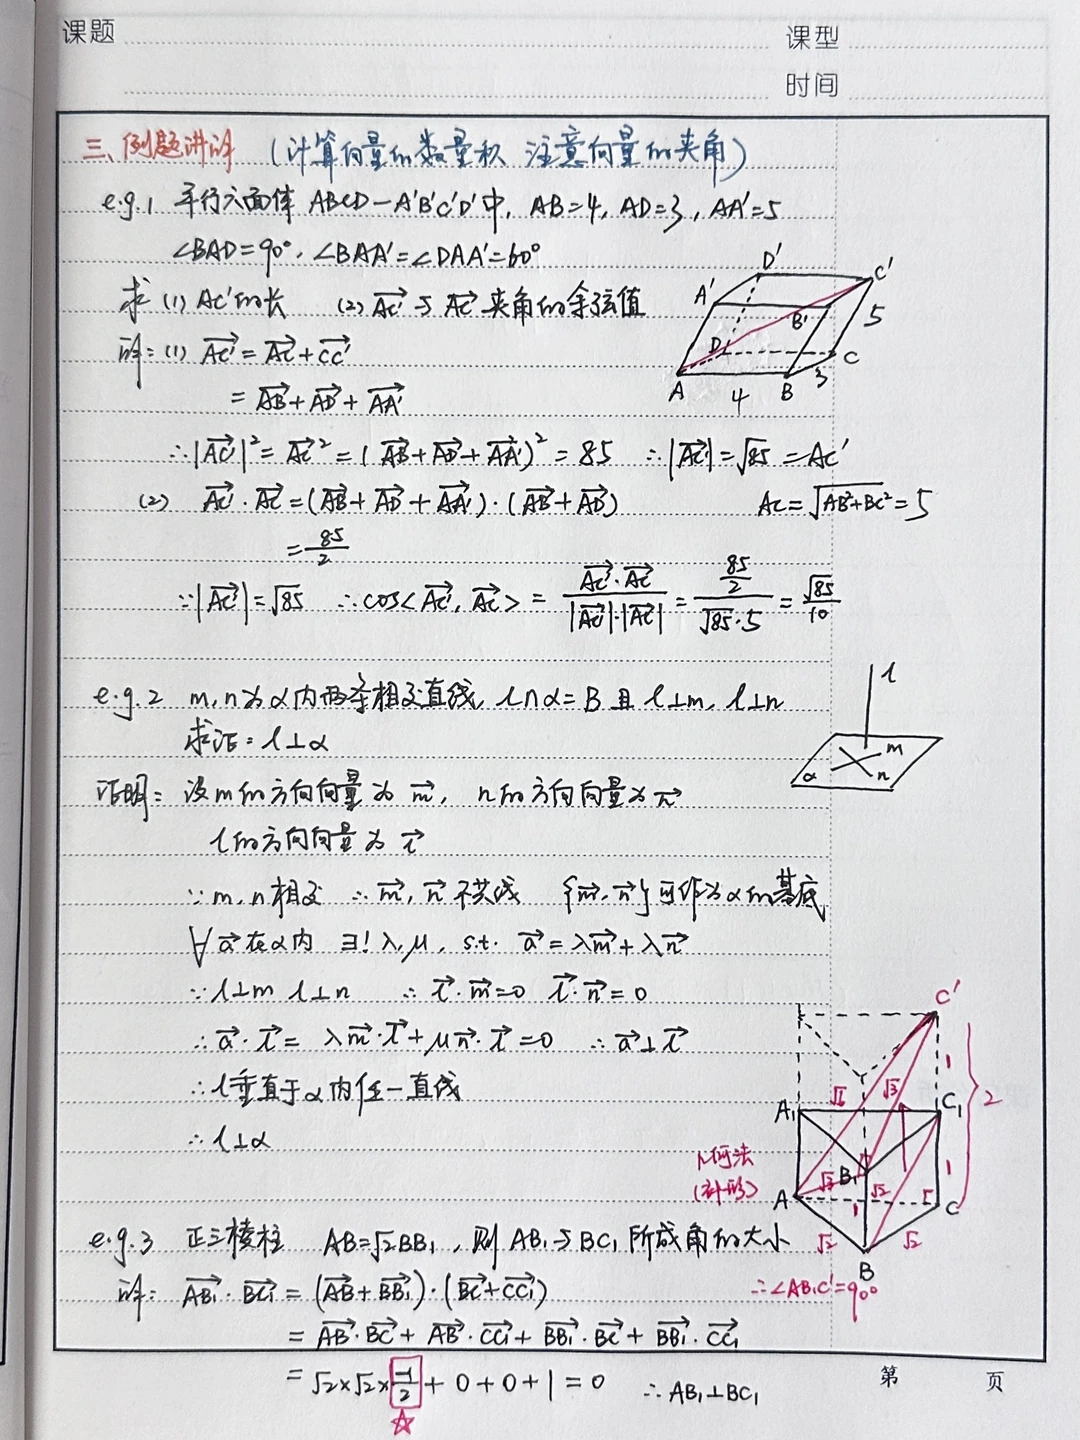 课题
课型
时间
三、例题讲解 (计算向量的数量积 注意向量的夹角)
e.g.1 平行六面体 ABCD-A'B'C'D'中, AB=4, AD=3, AA'=5
∠BAD=90°, ∠BAA'=∠DAA'=60°
求 (1) AC'的长 (2) \overrightarrow{AC'} 与 \overrightarrow{AC} 夹角的余弦值
解: (1) \overrightarrow{AC'} = \overrightarrow{AC} + \overrightarrow{CC'}
= \overrightarrow{AB} + \overrightarrow{AD} + \overrightarrow{AA'}
∴ |\overrightarrow{AC'}|² = \overrightarrow{AC'}² = (\overrightarrow{AB} + \overrightarrow{AD} + \overrightarrow{AA'})² = 85 ∴ |\overrightarrow{AC'}| = √85 = AC'
(2) \overrightarrow{AC'} · \overrightarrow{AC} = (\overrightarrow{AB} + \overrightarrow{AD} + \overrightarrow{AA'}) · (\overrightarrow{AB} + \overrightarrow{AD}) AC = \sqrt{AB²+BC²} = 5
= \frac{85}{2}
∵ |\overrightarrow{AC'}| = √85 ∴ cos<\overrightarrow{AC'}, \overrightarrow{AC}> = \frac{\overrightarrow{AC'}·\overrightarrow{AC}}{|\overrightarrow{AC'}|·|\overrightarrow{AC}|} = \frac{\frac{85}{2}}{√85·5} = \frac{√85}{10}
D' C'
A' B' 5
D C
A 4 B 3
e.g.2 m, n为α内两条相交直线, l∩α=B 且 l⊥m, l⊥n
求证: l⊥α
l
α m n
证明: 设m的方向向量为 \vec{m}, n的方向向量为 \vec{n}
l的方向向量为 \vec{l}
∵ m, n相交 ∴ \vec{m}, \vec{n} 不共线 {\vec{m}, \vec{n}}可作为α的基底
∀ \vec{a} 在α内 ∃! λ, μ, s.t. \vec{a} = λ\vec{m} + λ\vec{n}
∵ l⊥m l⊥n ∴ \vec{l}·\vec{m}=0 \vec{l}·\vec{n}=0
∴ \vec{a}·\vec{l} = λ\vec{m}·\vec{l} + μ\vec{n}·\vec{l} = 0 ∴ \vec{a}⊥\vec{l}
∴ l垂直于α内任一直线
∴ l⊥α
C'
√6 √3 1
A₁ C₁ 2
几何法
(补形)
√3 B₁ √2 1
A 1 C
√2 √2
B
∴∠AB₁C'=90°
e.g.3 正三棱柱 AB=√2BB₁, 则 AB₁与BC₁所成角的大小
解: \overrightarrow{AB₁} · \overrightarrow{BC₁} = (\overrightarrow{AB} + \overrightarrow{BB₁}) · (\overrightarrow{BC} + \overrightarrow{CC₁})
= \overrightarrow{AB}·\overrightarrow{BC} + \overrightarrow{AB}·\overrightarrow{CC₁} + \overrightarrow{BB₁}·\overrightarrow{BC} + \overrightarrow{BB₁}·\overrightarrow{CC₁}
= √2×√2×\frac{-1}{2} + 0 + 0 + 1 = 0 ∴ AB₁⊥BC₁
第 页